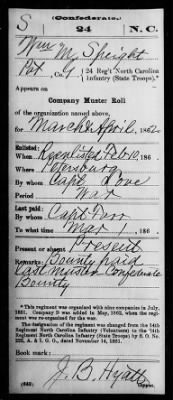 (Confederate.)
S 24 N. C.
Wm M. Speight
Pvt, Co. I, 24 Reg't North Carolina
Infantry (State Troops).*
Appears on
Company Muster Roll
of the organization named above,
for March & April, 1862.
Enlisted:
When Reenlisted Feb 10, 186 .
Where Petersburg
By whom Capt. Love
Period War
Last paid:
By whom Capt. Farr
To what time Mar 1, 186 .
Present or absent Present
Remarks: Bounty paid
Last muster Confederate
Bounty
*This regiment was organized with nine companies in July,
1861. Company D was added in May, 1862, when the regi-
ment was re-organized for the war.
The designation of this regiment was changed from the 14th
Regiment North Carolina Infantry (Volunteers) to the 24th
Regiment North Carolina Infantry (State Troops) by S. O. No.
222, A. & I. G. O., dated November 14, 1861.
Book mark:
J. B. Hyatt
(642) Copyist.